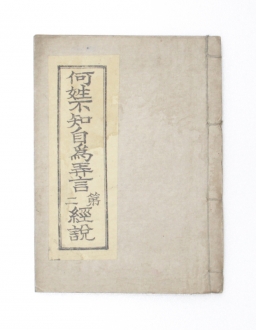 何姓不知自為弄言
第二
經說